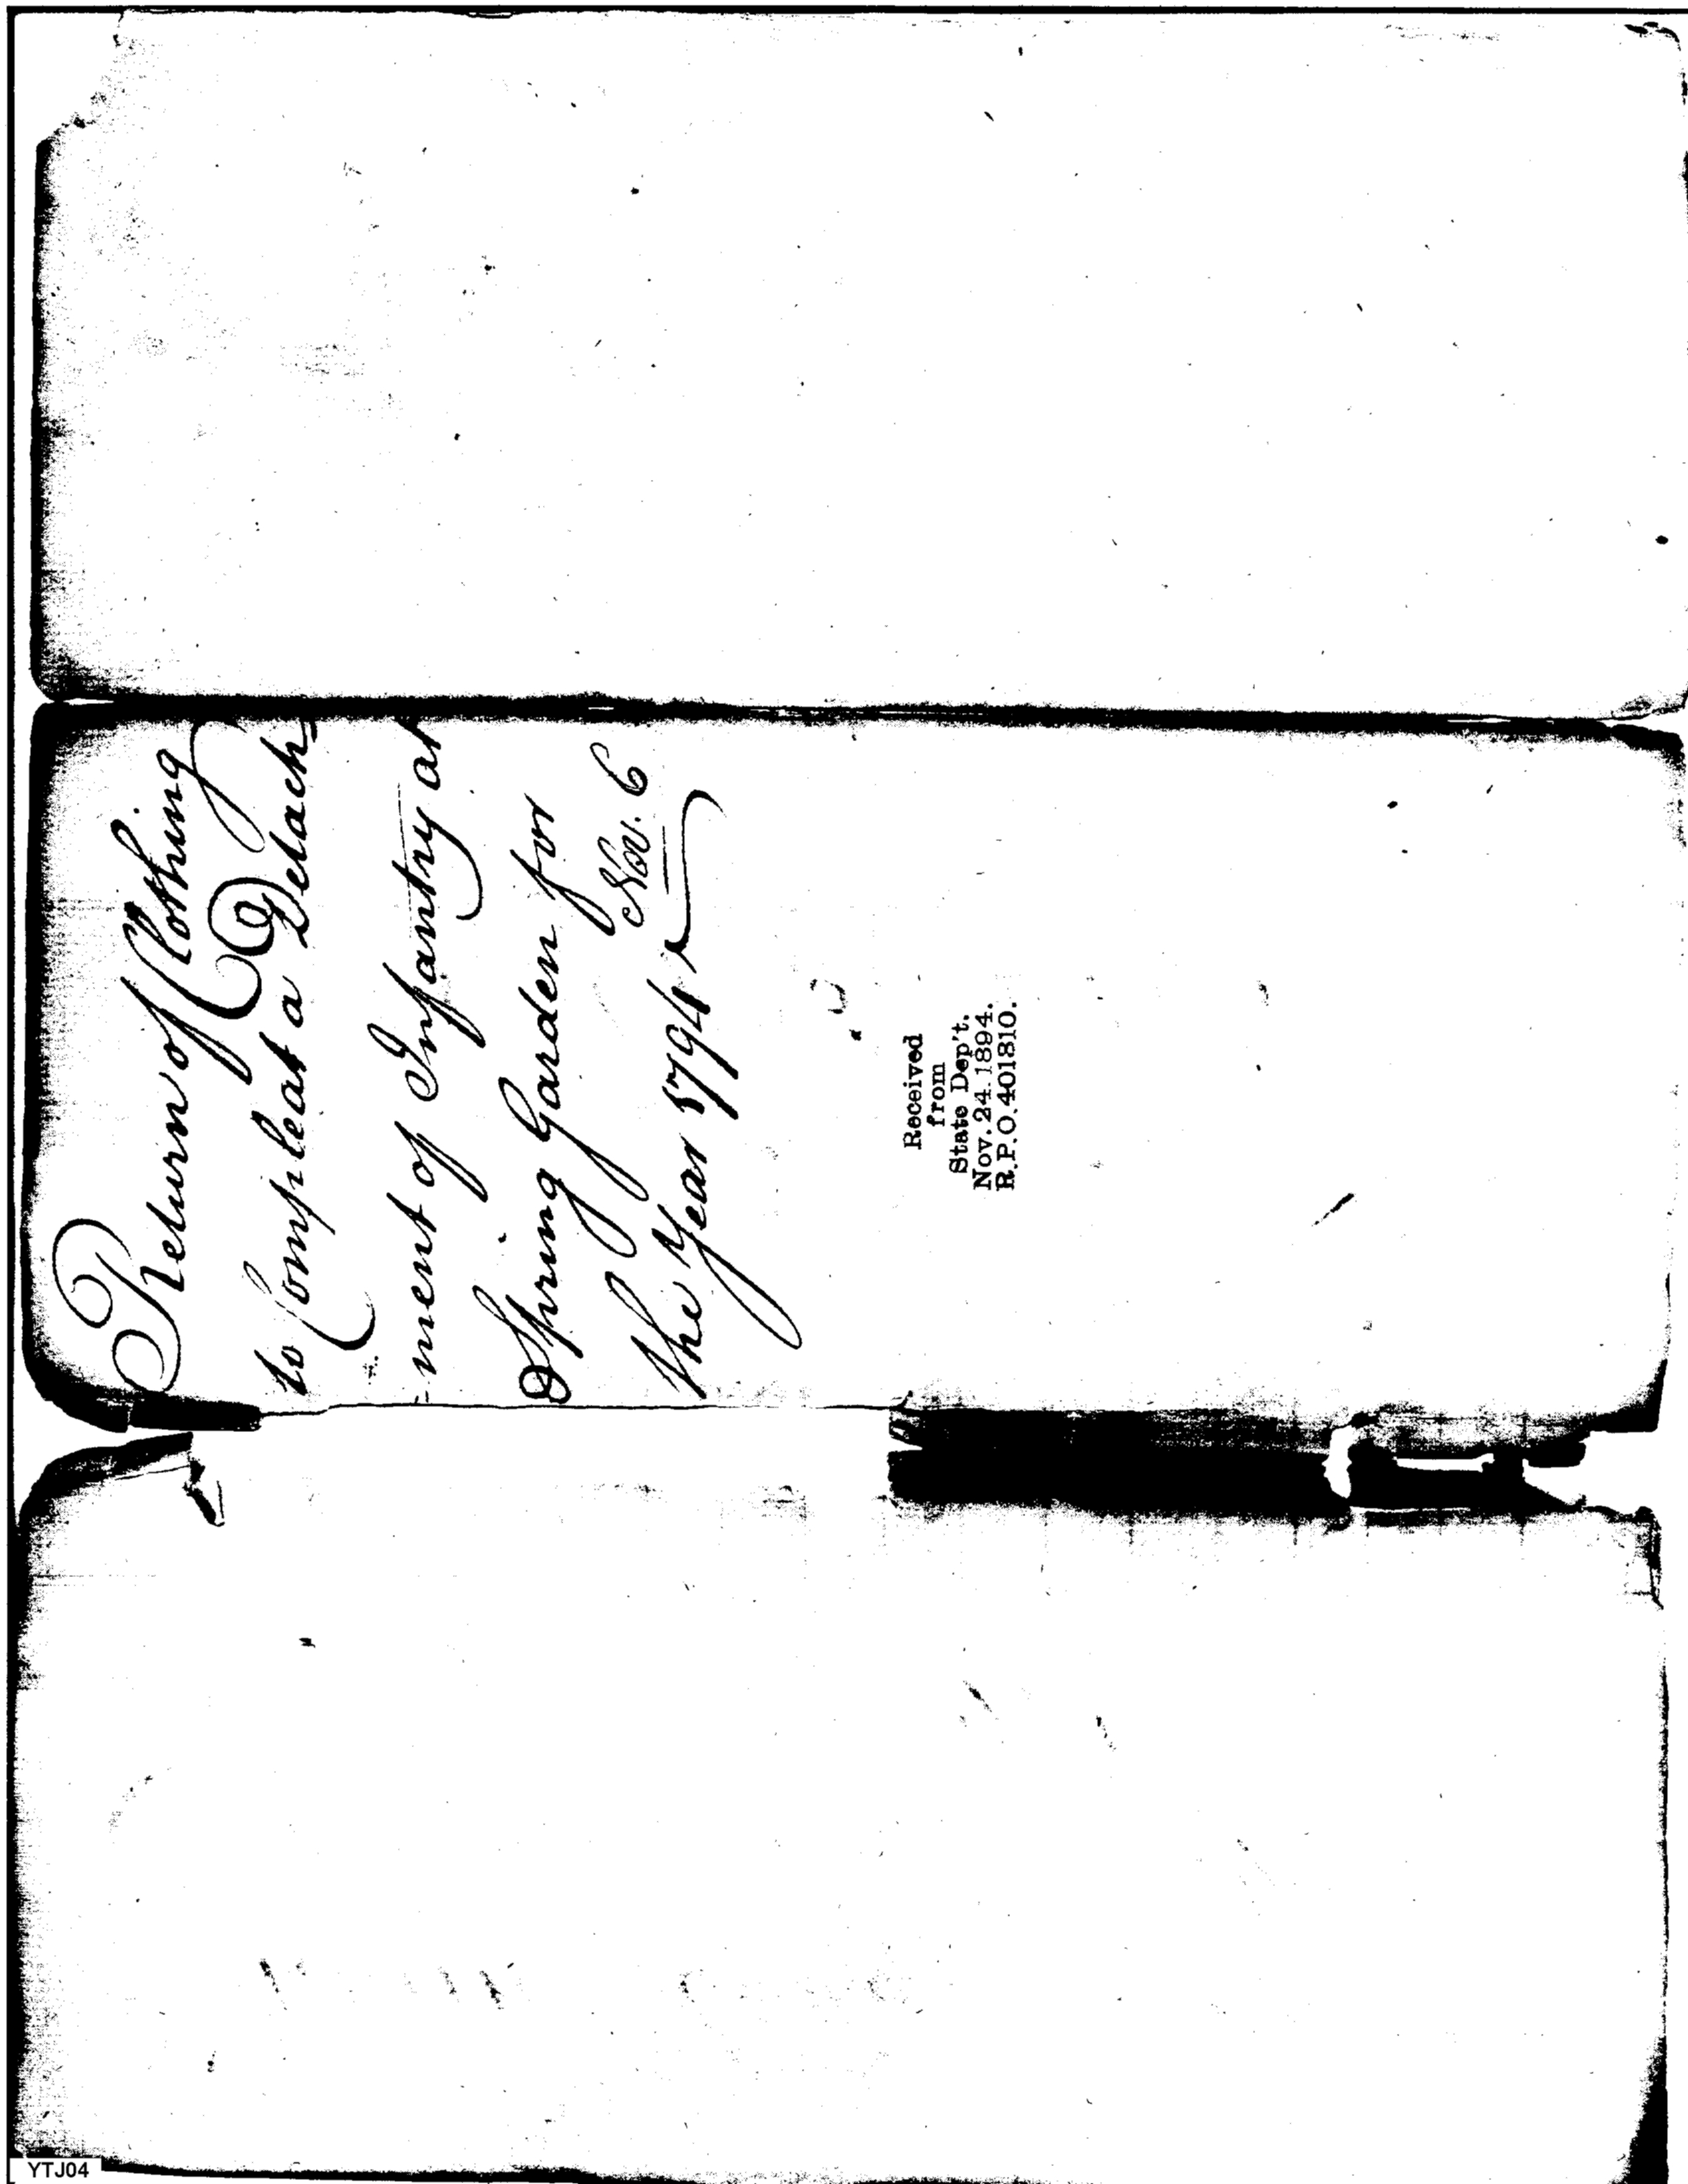 Return of Clothing
to Compleat a Detach
-ment of Infantry at
Spring Garden for
the Year 1794
Nov. 6
Received
from
State Dep't.
Nov. 24. 1894.
R.P.O. 401810.
YTJ04